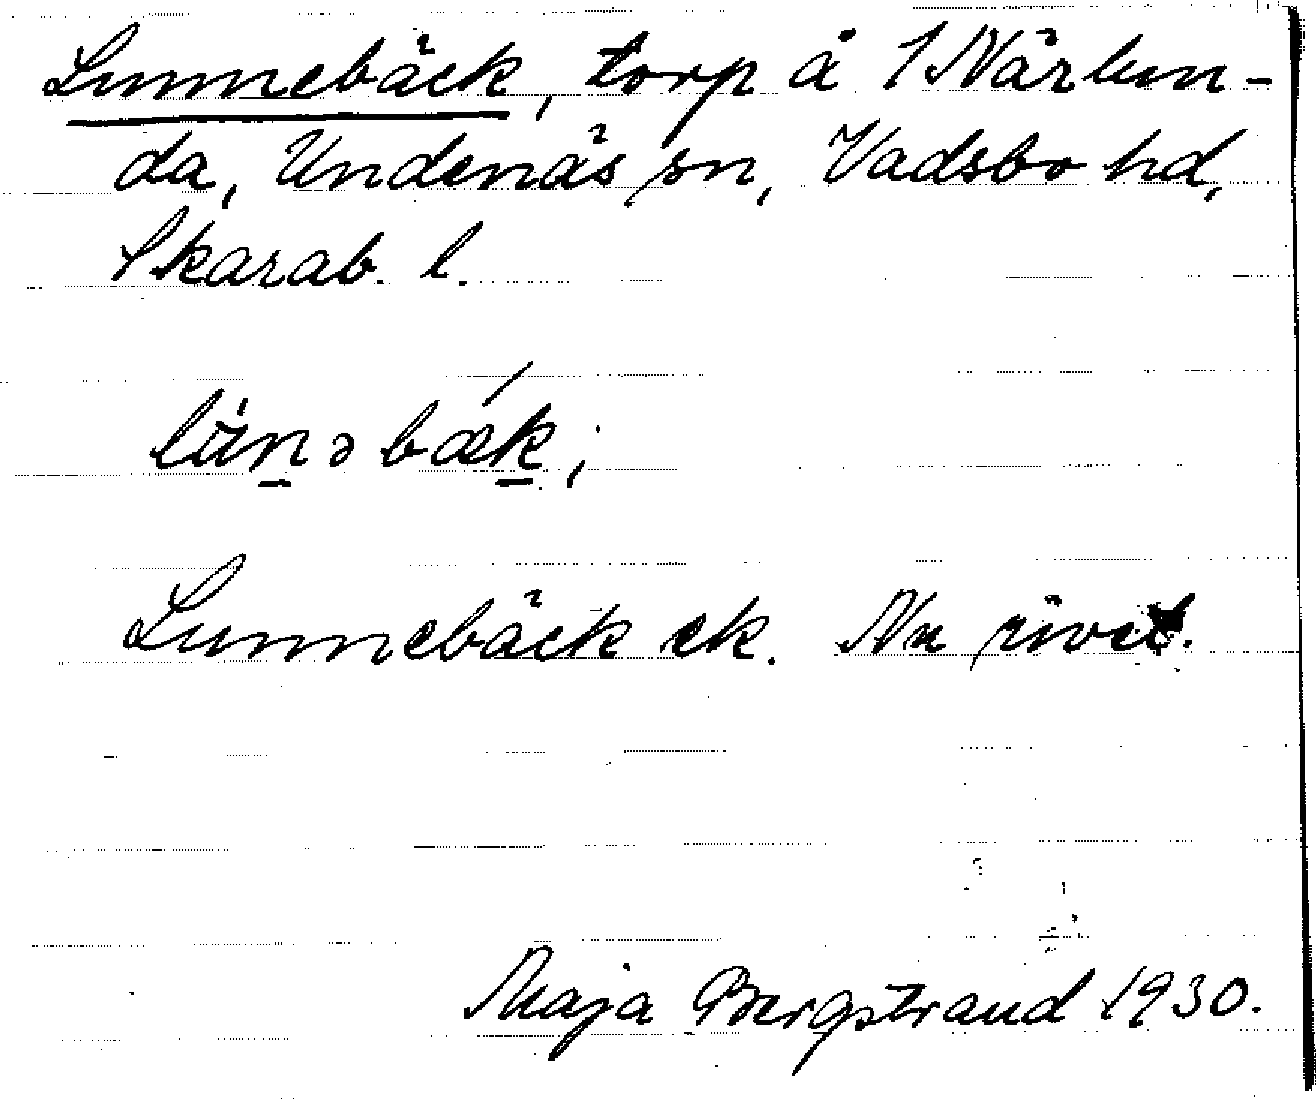 Lunnebäck, torp å 1 Närlun-
da, Undenäs sn, Vadsbo hd,
Skarab. l.
lünəbæk;
Lunnebäck ek. Nu rivet.
Maja Bergstrand 1930.